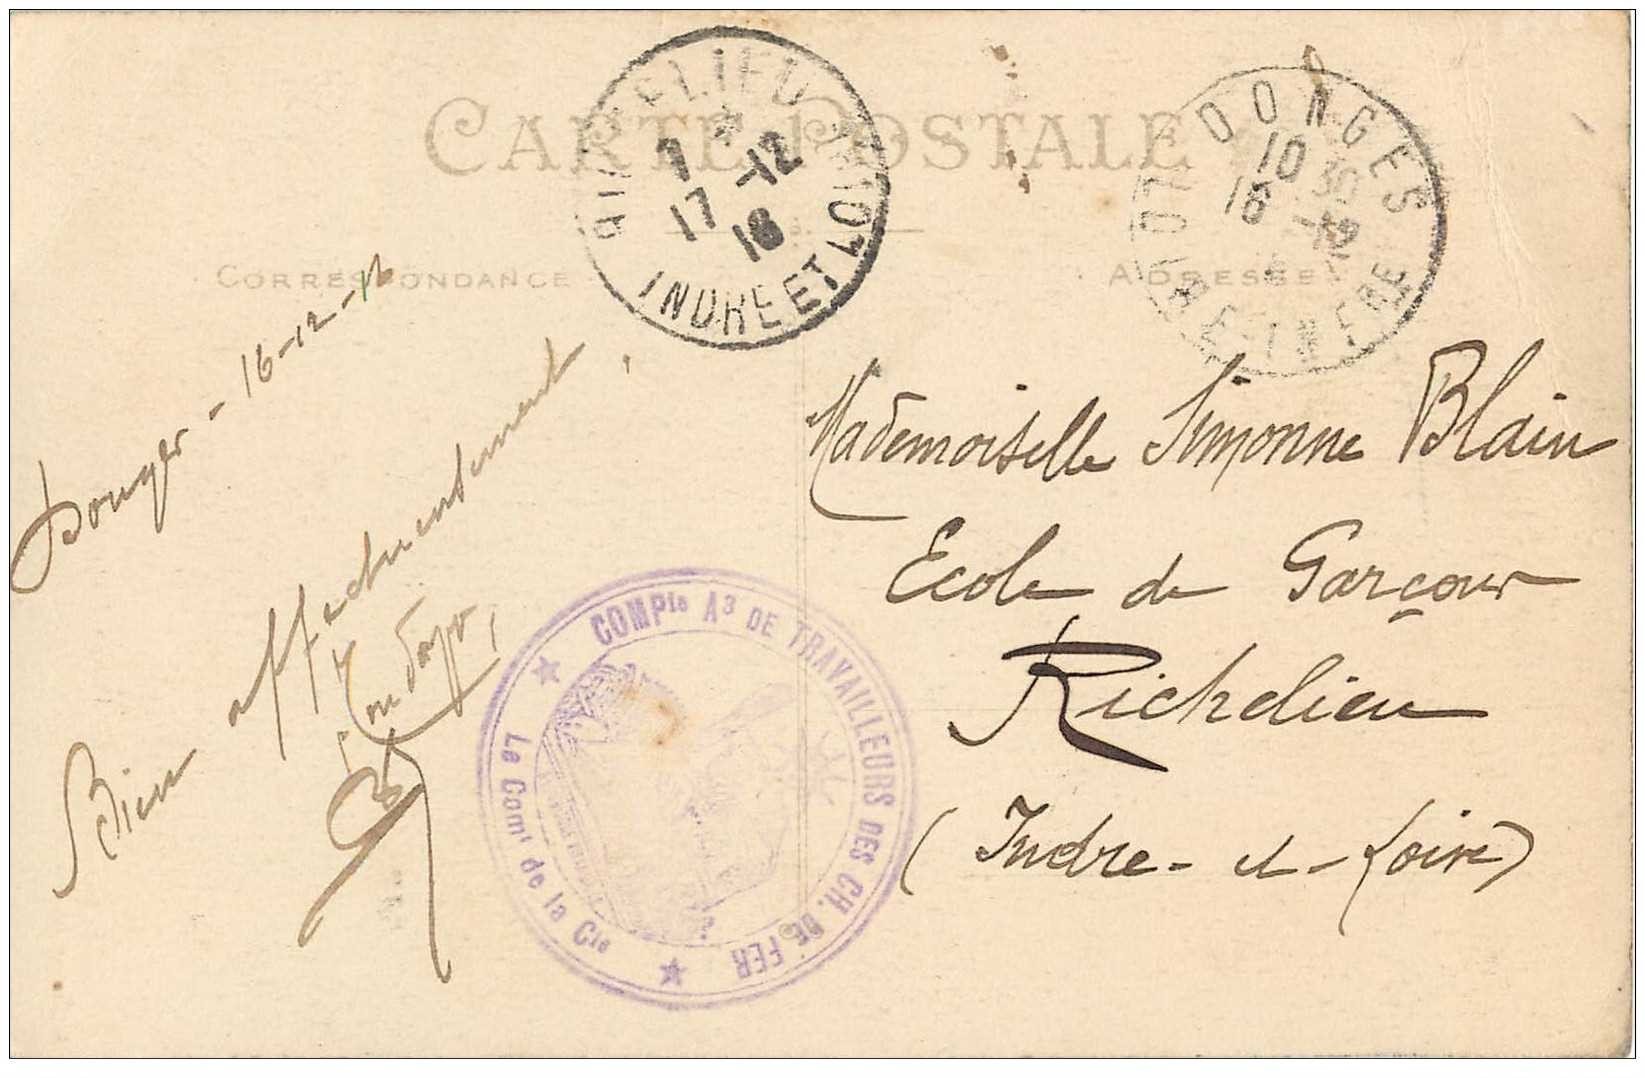 CARTE POSTALE
CORRESPONDANCE
ADRESSE
RICHELIEU
7 -12
17
16
INDRE ET LOIRE
DONGES
10 30
16 -12
LOIRE-INFRE
Donges - 16-12-16
Bien affectueusement,
Mademoiselle Simonne Blain
Ecole de Garçons
Richelieu
(Indre-et-Loire)
COMPIE A3 DE TRAVAILLEURS DES CH. DE FER
Le Comt de la Cie